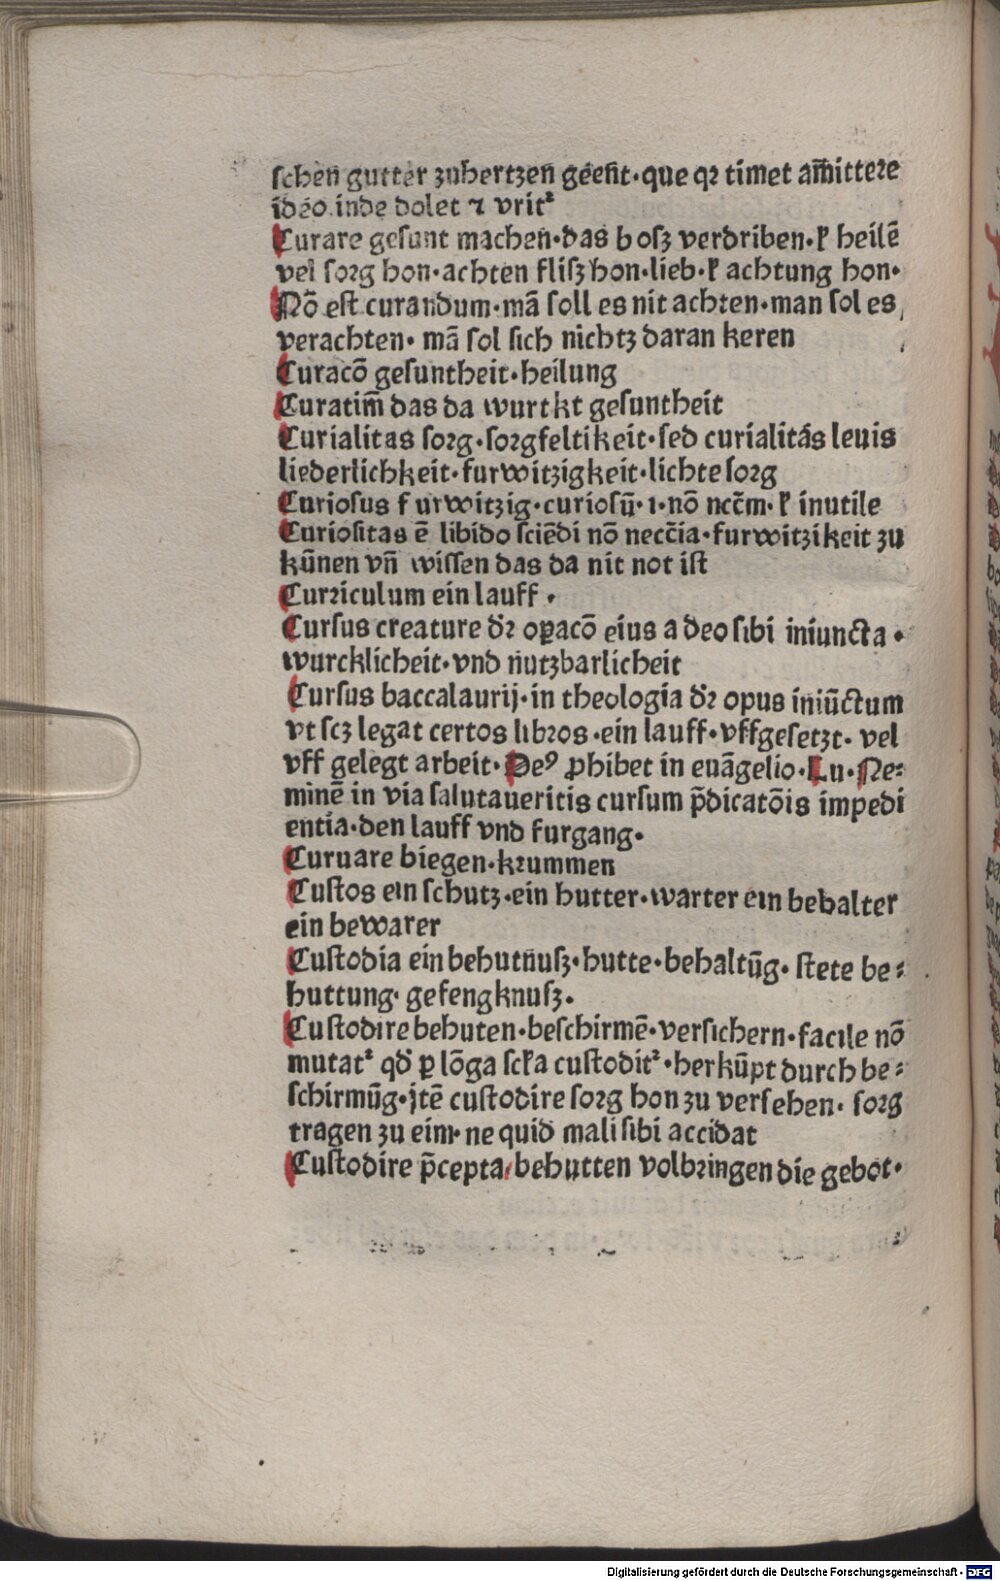 schen gutter zuhertzen geent·que qꝛ timet am̅ittere
ideo inde dolet ⁊ vritᷣ
Curare gesunt machen·das bosz verdriben·ł heilē
vel sorg hon·achten fliszhon·lieb·ł achtung hon·
Nō est curandum·mā soll es nit achten·man sol es
verachten·mā sol sich nichtz daran keren
Curacō gesuntheit·heilung
Curatim̅ das da wurtkt gesuntheit
Curialitas sorg·sorgfeltikeit·sed curialitas leuis
liederlichkeit·furwitzigkeit·lichte sorg
Curiosus furwitzig·curiosū·i·nō ncc̄m·ł inutile
Curiositas ē libido sciēdi nō necc̄ia·furwitzikeit zu
kūnen vn̄ wissen das da nit not ist
Curriculum ein lauff·
Cursus creature dꝛ̄ oꝑacō eius a deo sibi iniuncta·
wurcklicheit·vnd nutzbarlicheit
Cursus baccalaurij·in theologia dꝛ̄ opus iniūctum
vt scz legat certos libros·ein lauff·vffgesetzt·vel
vff gelegt arbeit·Deꝰ ꝓhibet in euāgelio·Lu·Ne⸗
minē in via salutaueritis cursum p̄dicatōis impedi
entia·den lauff vnd furgang·
Curuare biegen·krummen
Custos ein schutz·ein hutter·warter ein behalter
ein bewarer
Custodia ein behutnusz·hutte·behaltūg·stete be⸗
huttung·gefengknusz·
Custodire behuten·beschirmē·versichern·facile nō
mutatᷣ qd̄ ꝑ lōga scła custoditᷣ·herkūpt durch be⸗
schirmūg·jtē custodire sorg hon zu versehen·sorg
tragen zu eim·ne quid mali sibi accidat
Custodire p̄cepta behutten volbringen die gebot·
Digitalisierung gefördert durch die Deutsche Forschungsgemeinschaft - DFG